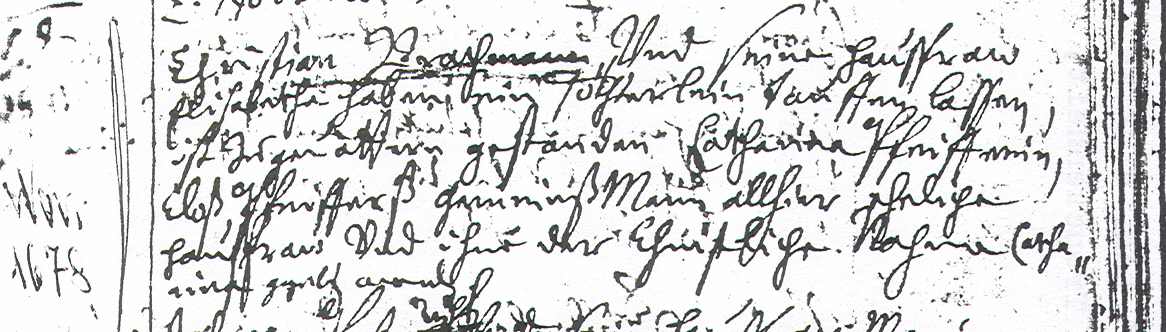 8
Christian Brachmann Und seine haussfraw
Elisabetha haben ein Töchterlein tauffen lassen,
ist zu gevattern gestanden Catharina Pfeifferin,
Cloß Pfeifferß gemeinß Mann allhier eheliche
9br
1678
haussfraw Und ihme der Christliche Nahme Catha„
rina geben worden